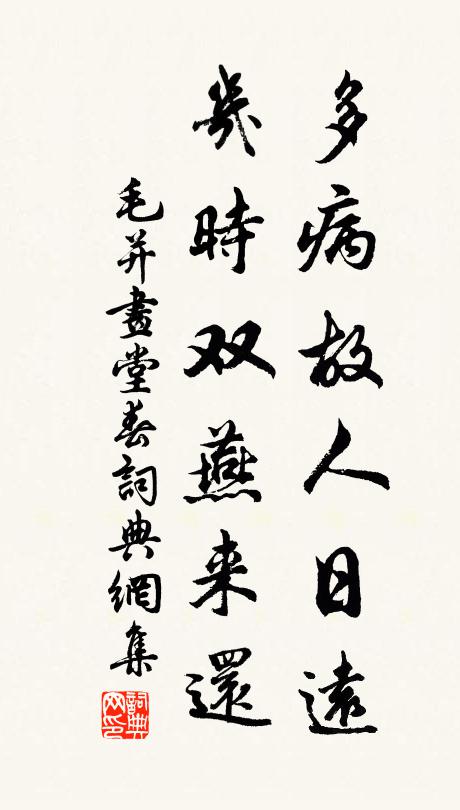 多病故人日遠
幾時双燕来還
毛并畫堂春詞典網集
詞典網印